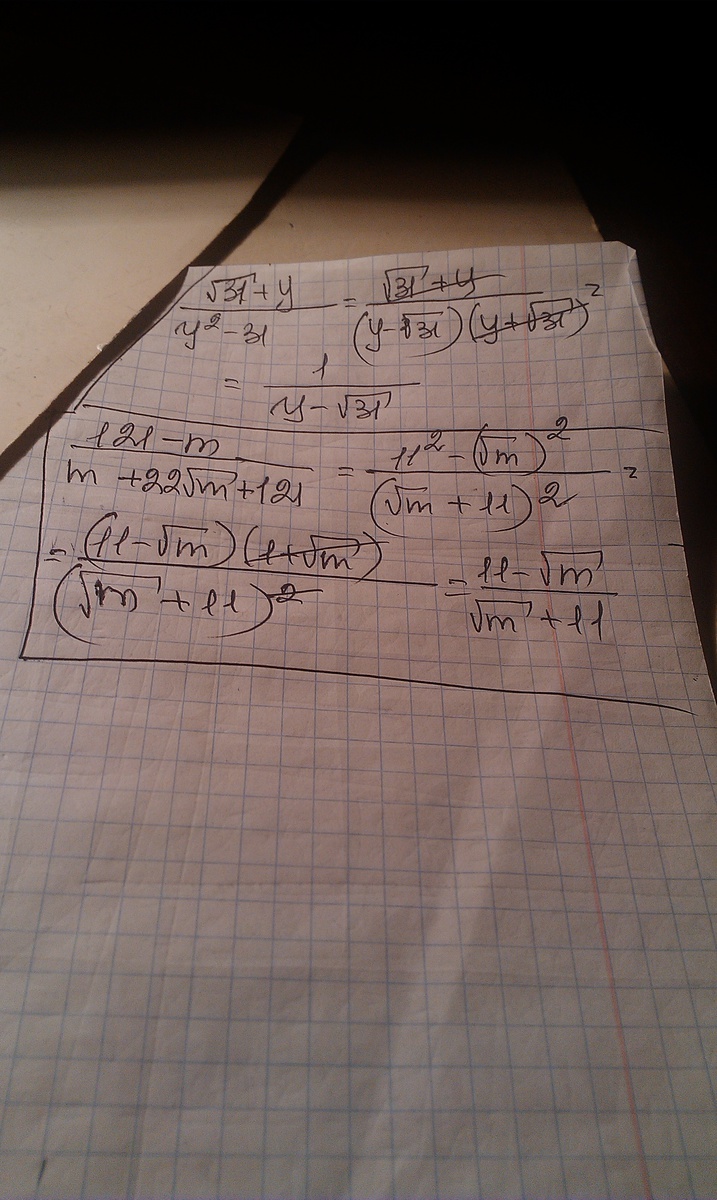 (√31 + y) / (y² - 31) = (√31 + y) / ((y - √31)(y + √31)) =
= 1 / (y - √31)
(121 - m) / (m + 22√m + 121) = (11² - (√m)²) / (√m + 11)² =
= ((11 - √m)(1 + √m)) / (√m + 11)² = (11 - √m) / (√m + 11)